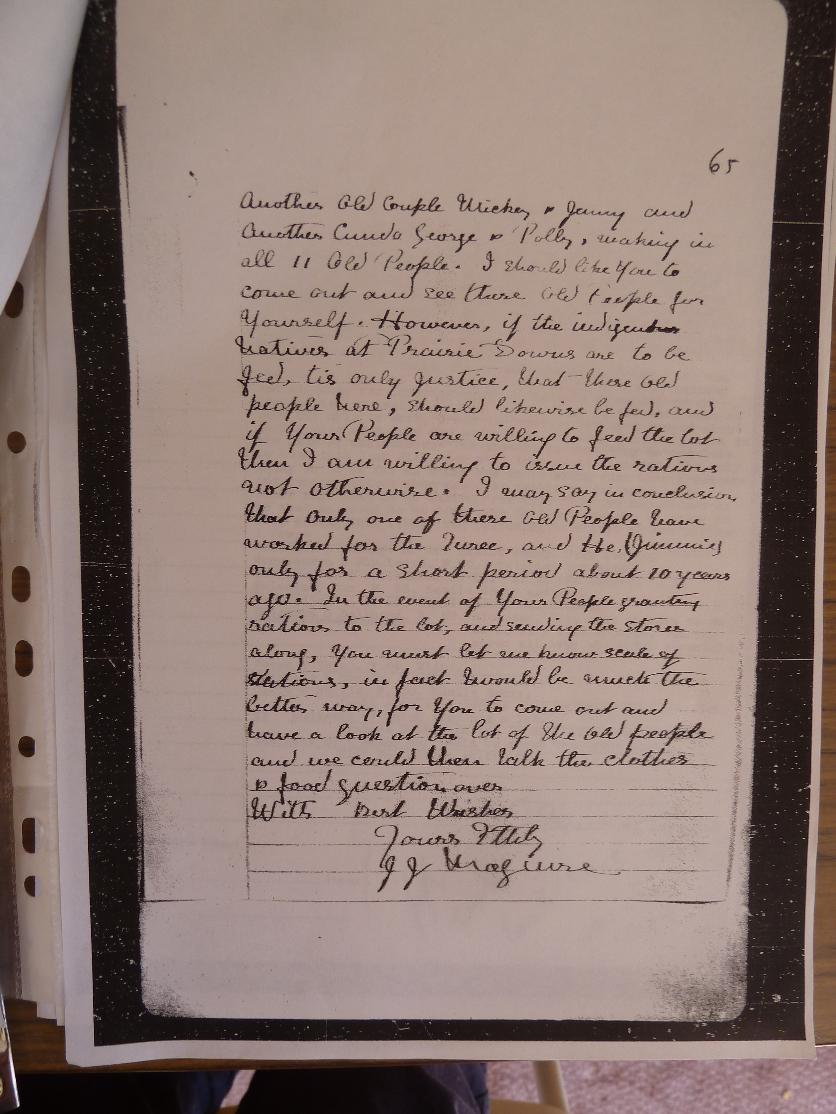 65
Another Old Couple Mickey & Jenny and
Another Cunda George & Polly, making in
all 11 Old People. I should like You to
come out and see these old People for
Yourself. However, if the indigenous
natives at Prairie Downs are to be
fed, tis only justice, that these old
people here, should likewise be fed, and
if Your People are willing to feed the lot
then I am willing to issue the rations
not otherwise. I may say in conclusion,
that only one of these old People have
worked for the Turee, and He, (Jimmie)
only for a short period about 10 years
ago. In the event of Your People granting
rations to the lot, and sending the stores
along, You must let me know scale of
rations, in fact twould be much the
better way, for You to come out and
have a look at the lot of the old people
and we could then talk the clothes
& food question over
With Best Wishes
Yours Ftlly
J J Maguire